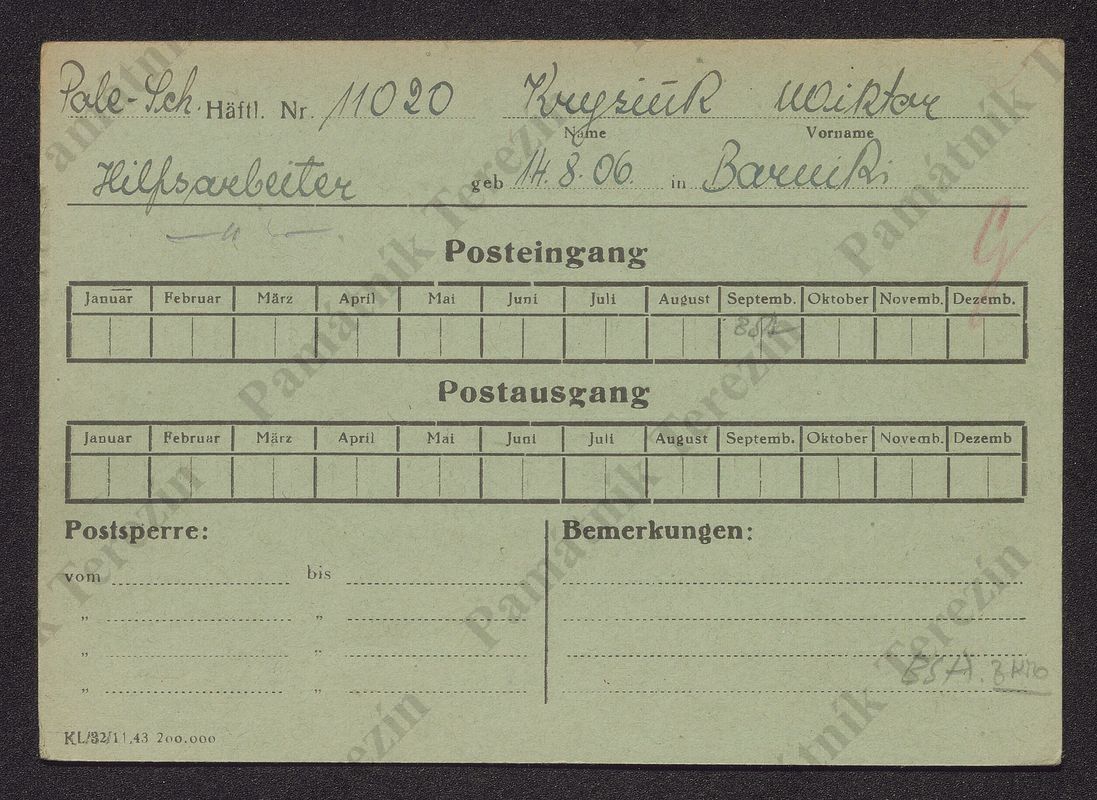 Pole-Sch. Häftl. Nr. 11020 Krysiuk Wiktor
Name Vorname
Hilfsarbeiter geb 14.8.06. in Barniki
Posteingang
Januar Februar März April Mai Juni Juli August Septemb. Oktober Novemb. Dezemb.
Postausgang
Januar Februar März April Mai Juni Juli August Septemb. Oktober Novemb. Dezemb
Postsperre: Bemerkungen:
vom bis
" "
" "
" "
BSA.
KL/32/11,43 200.000
Památník Terezín